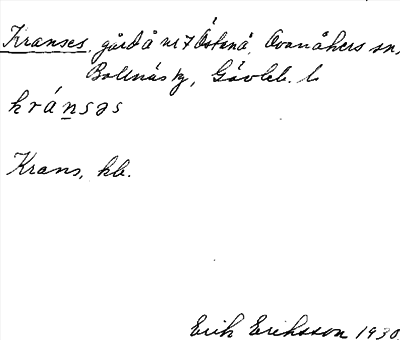 Kranses, gård å nr 7 Östanå, Ovanåkers sn,
Bollnäs tg, Gävleb. l.
kránsəs
Krans, hb.
Erik Eriksson 1930.